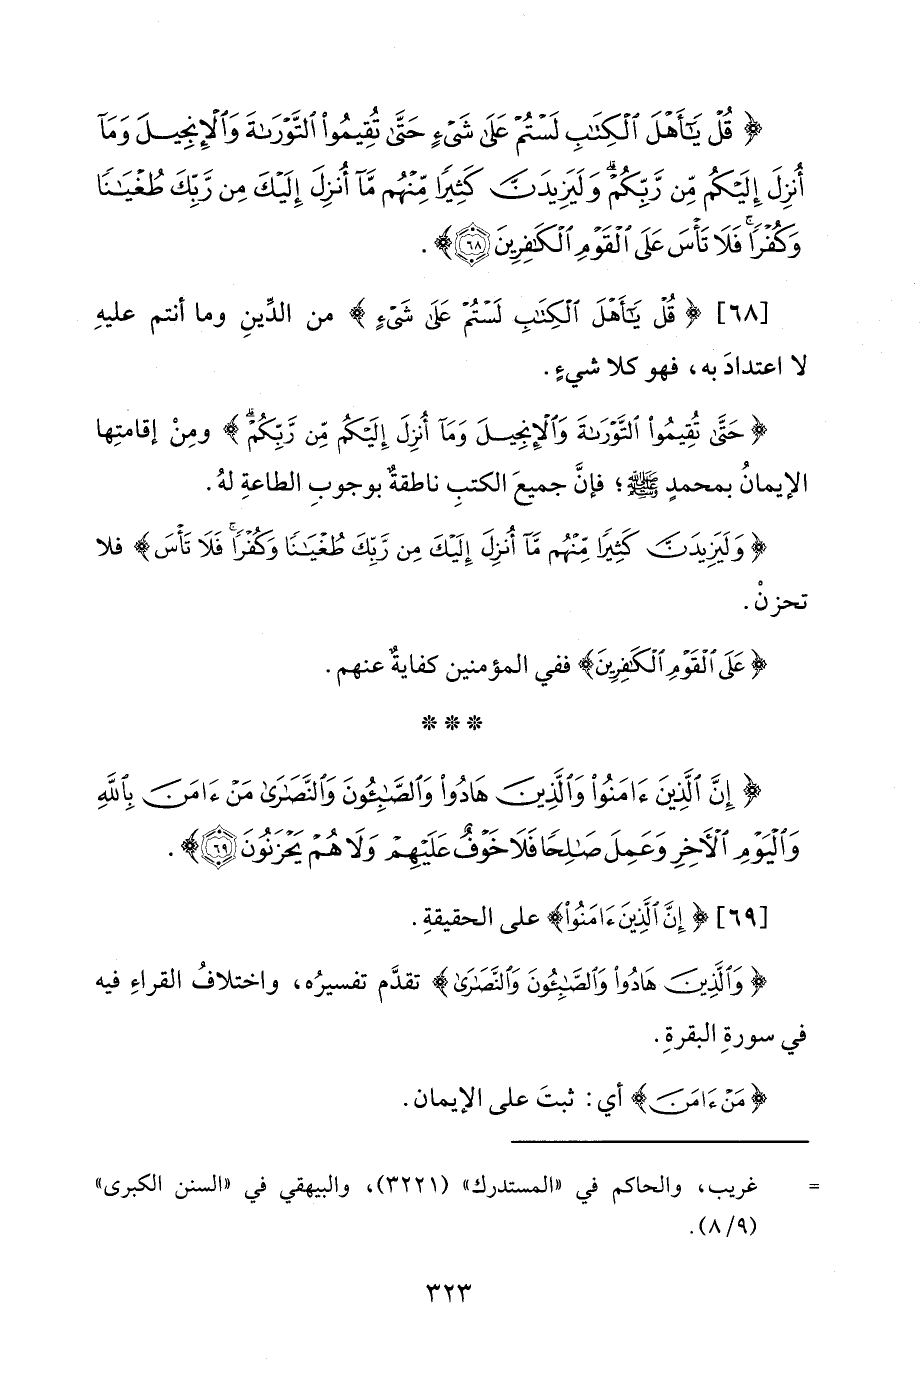 ﴿ قُلْ يَٰٓأَهْلَ ٱلْكِتَٰبِ لَسْتُمْ عَلَىٰ شَىْءٍ حَتَّىٰ تُقِيمُوا۟ ٱلتَّوْرَىٰةَ وَٱلْإِنجِيلَ وَمَآ
أُنزِلَ إِلَيْكُم مِّن رَّبِّكُمْ ۗ وَلَيَزِيدَنَّ كَثِيرًا مِّنْهُم مَّآ أُنزِلَ إِلَيْكَ مِن رَّبِّكَ طُغْيَٰنًا
وَكُفْرًا ۖ فَلَا تَأْسَ عَلَى ٱلْقَوْمِ ٱلْكَٰفِرِينَ ﴿٦٨﴾ ﴾ .
[٦٨] ﴿ قُلْ يَٰٓأَهْلَ ٱلْكِتَٰبِ لَسْتُمْ عَلَىٰ شَىْءٍ ﴾ من الدِّينِ وما أنتم عليهِ
لا اعتدادَ به، فهو كلا شيءٍ.
﴿ حَتَّىٰ تُقِيمُوا۟ ٱلتَّوْرَىٰةَ وَٱلْإِنجِيلَ وَمَآ أُنزِلَ إِلَيْكُم مِّن رَّبِّكُمْ ۗ ﴾ ومِنْ إقامتِها
الإيمانُ بمحمدٍ ﷺ؛ فإنَّ جميعَ الكتبِ ناطقةٌ بوجوبِ الطاعةِ لهُ.
﴿ وَلَيَزِيدَنَّ كَثِيرًا مِّنْهُم مَّآ أُنزِلَ إِلَيْكَ مِن رَّبِّكَ طُغْيَٰنًا وَكُفْرًا ۖ فَلَا تَأْسَ ﴾ فلا
تحزنْ.
﴿ عَلَى ٱلْقَوْمِ ٱلْكَٰفِرِينَ ﴾ ففي المؤمنين كفايةٌ عنهم.
* * *
﴿ إِنَّ ٱلَّذِينَ ءَامَنُوا۟ وَٱلَّذِينَ هَادُوا۟ وَٱلصَّٰبِـُٔونَ وَٱلنَّصَٰرَىٰ مَنْ ءَامَنَ بِٱللَّهِ
وَٱلْيَوْمِ ٱلْأَخِرِ وَعَمِلَ صَٰلِحًا فَلَا خَوْفٌ عَلَيْهِمْ وَلَا هُمْ يَحْزَنُونَ ﴿٦٩﴾ ﴾ .
[٦٩] ﴿ إِنَّ ٱلَّذِينَ ءَامَنُوا۟ ﴾ على الحقيقةِ.
﴿ وَٱلَّذِينَ هَادُوا۟ وَٱلصَّٰبِـُٔونَ وَٱلنَّصَٰرَىٰ ﴾ تقدَّم تفسيرُه، واختلافُ القراءِ فيه
في سورةِ البقرةِ.
﴿ مَنْ ءَامَنَ ﴾ أي: ثبتَ على الإيمان.
= غريب، والحاكم في «المستدرك» (٣٢٢١)، والبيهقي في «السنن الكبرى»
(٨/٩).
٣٢٣